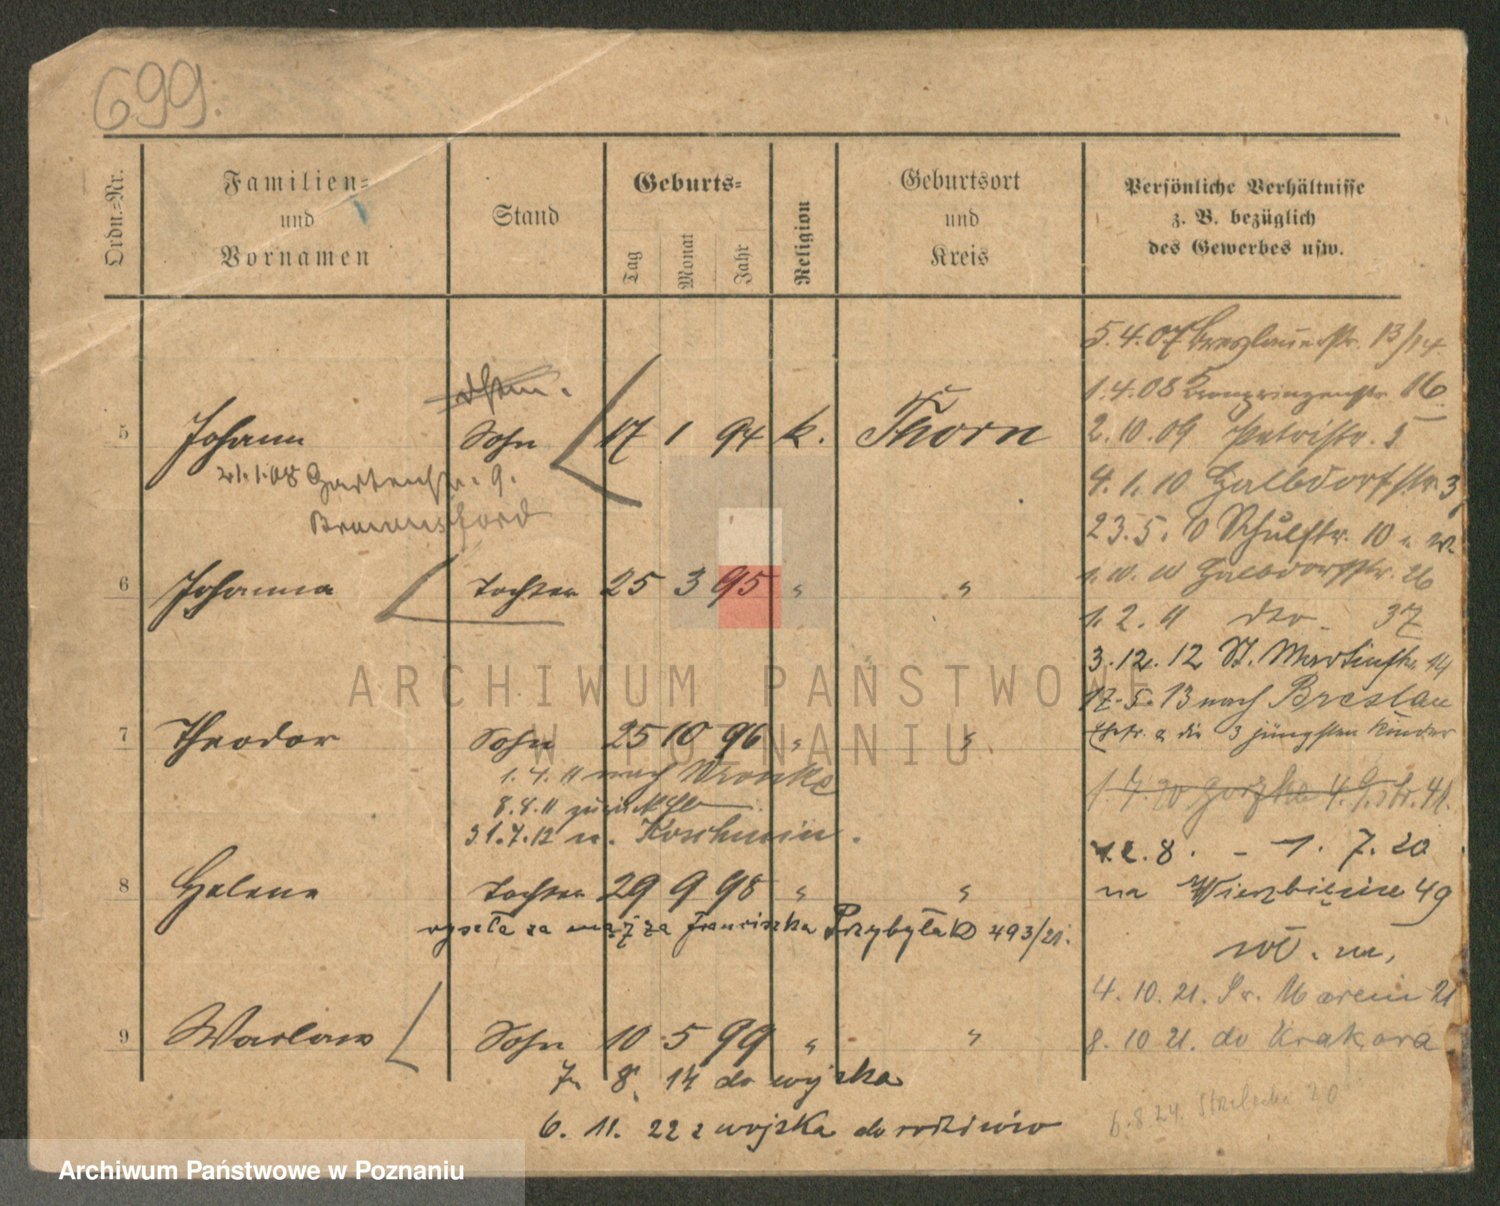 699.
Ordn.-Nr.
Familien-
und
Vornamen
Stand
Geburts-
Tag
Monat
Jahr
Religion
Geburtsort
und
Kreis
Persönliche Verhältnisse
z. B. bezüglich
des Gewerbes usw.
5.4.07 Breslauerstr. 13/14
1.4.08 Kronprinzenstr. 16
5 Johann Sohn 17 1 94 k. Thorn
2.10.09 Petristr. 5
21.1.08 Gartenstr. 9.
4.1.10 Halbdorfstr. 3
23.5.10 Schulstr. 10
6 Johanna Tochter 25 3 95 " "
1.10.10 Halbdorfstr. 26
1.2.11 dto. 37
3.12.12 St. Martinstr. 14
17.5.13 nach Breslau
7 Theodor Sohn 25 10 96 " "
die 3 jüngsten Kinder
1.4.11 nach Wronke
8.8.11 zurück
31.7.12 n. Koschmin.
1.7.20
8 Helena Tochter 29 9 98 " "
na Wierzbięcice 49
wyszła za mąż za Franciszka Przybyłak 493/21.
4.10.21. Św. Marcin 21
9 Waclaw Sohn 10 5 99 " "
8.10 21. do Krakowa
7. 8. 14 do wojska
6. 11. 22 z wojska do rodziców
6.8.24. Strzelecka 20
ARCHIWUM PAŃSTWOWE
W POZNANIU
Archiwum Państwowe w Poznaniu